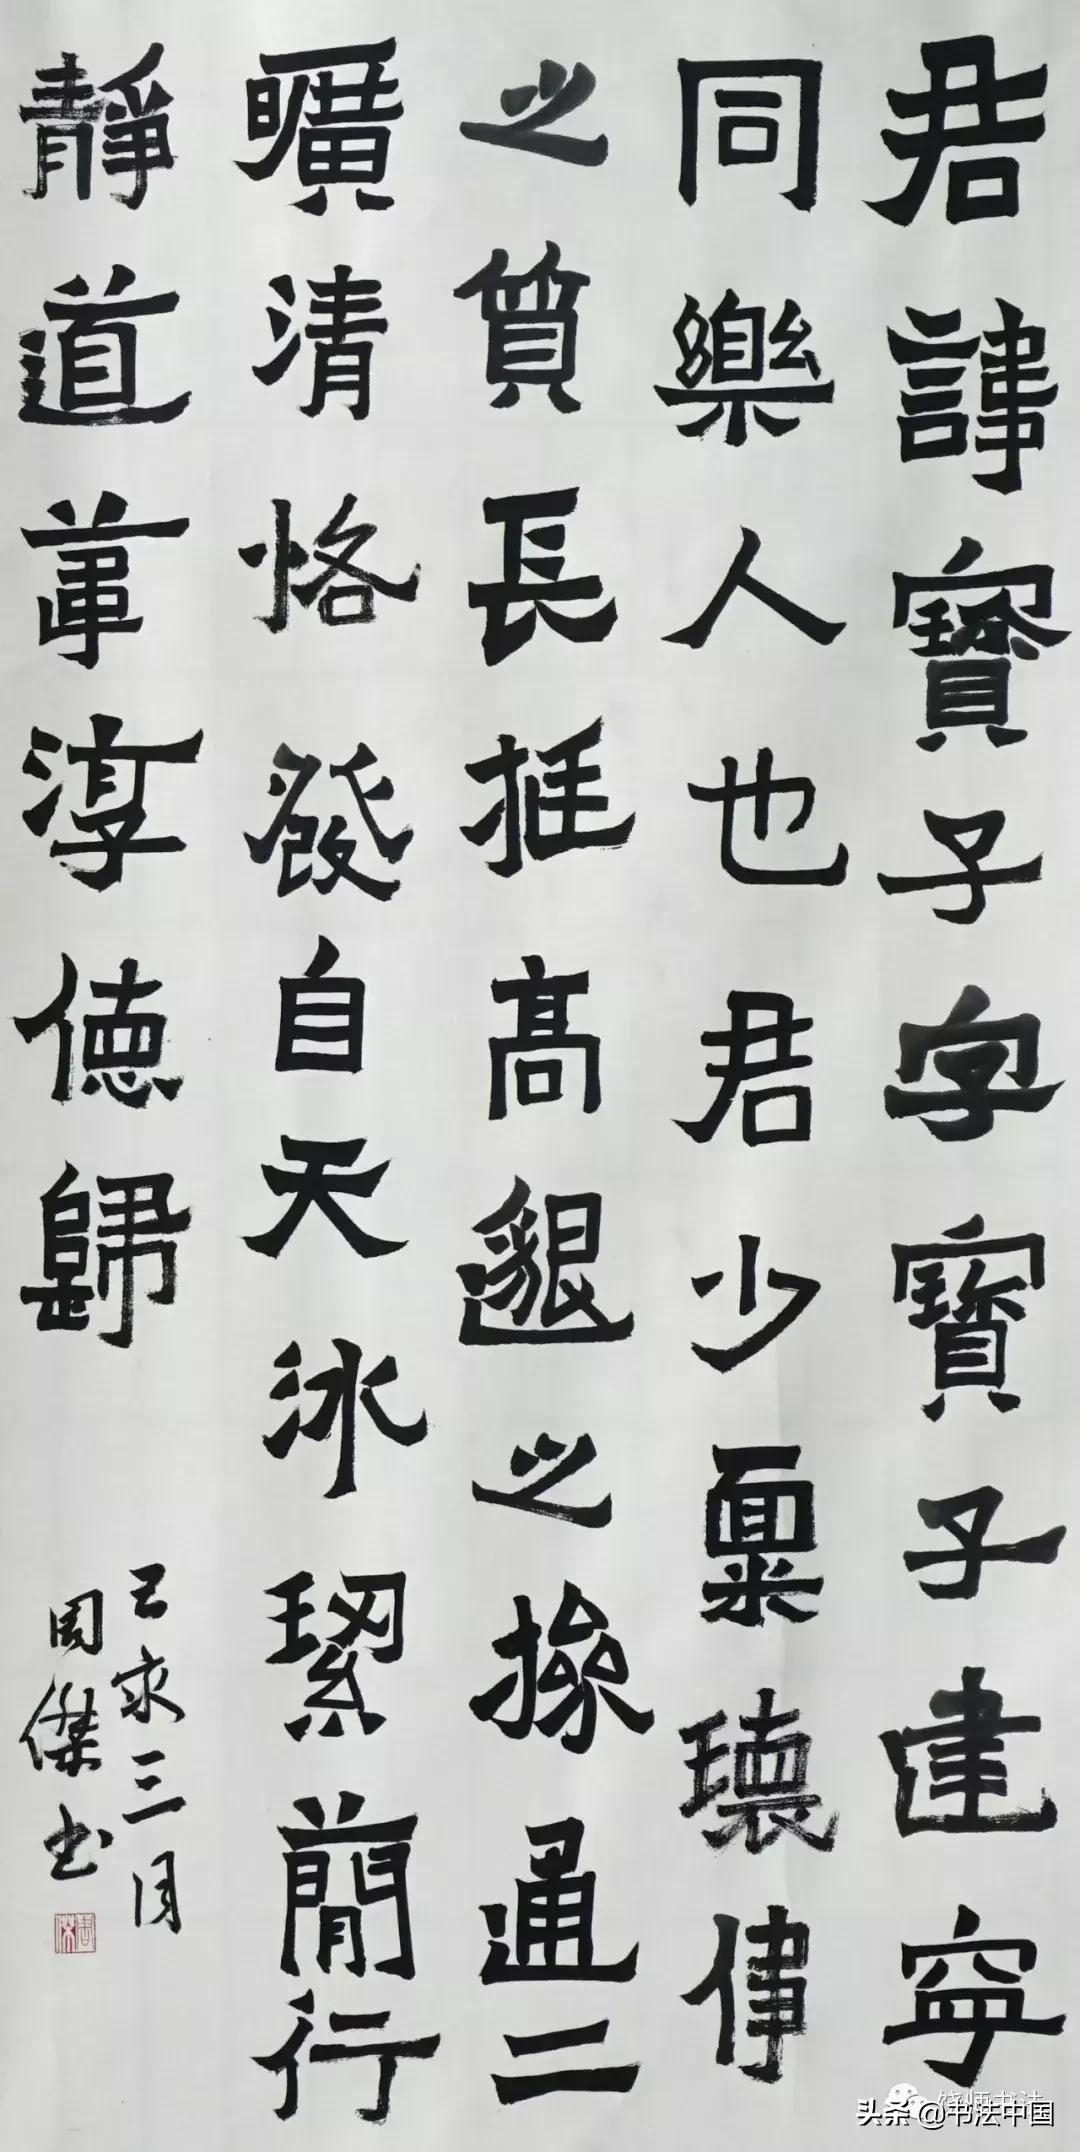 君諱寶子字寶子建寧
同樂人也君少稟瓌偉
之質長挺高邈之操通二
曠清恪發自天然冰絜簡行
靜道葦淳德歸
己亥三月
周傑書
头条 @书法中国
饶师书法